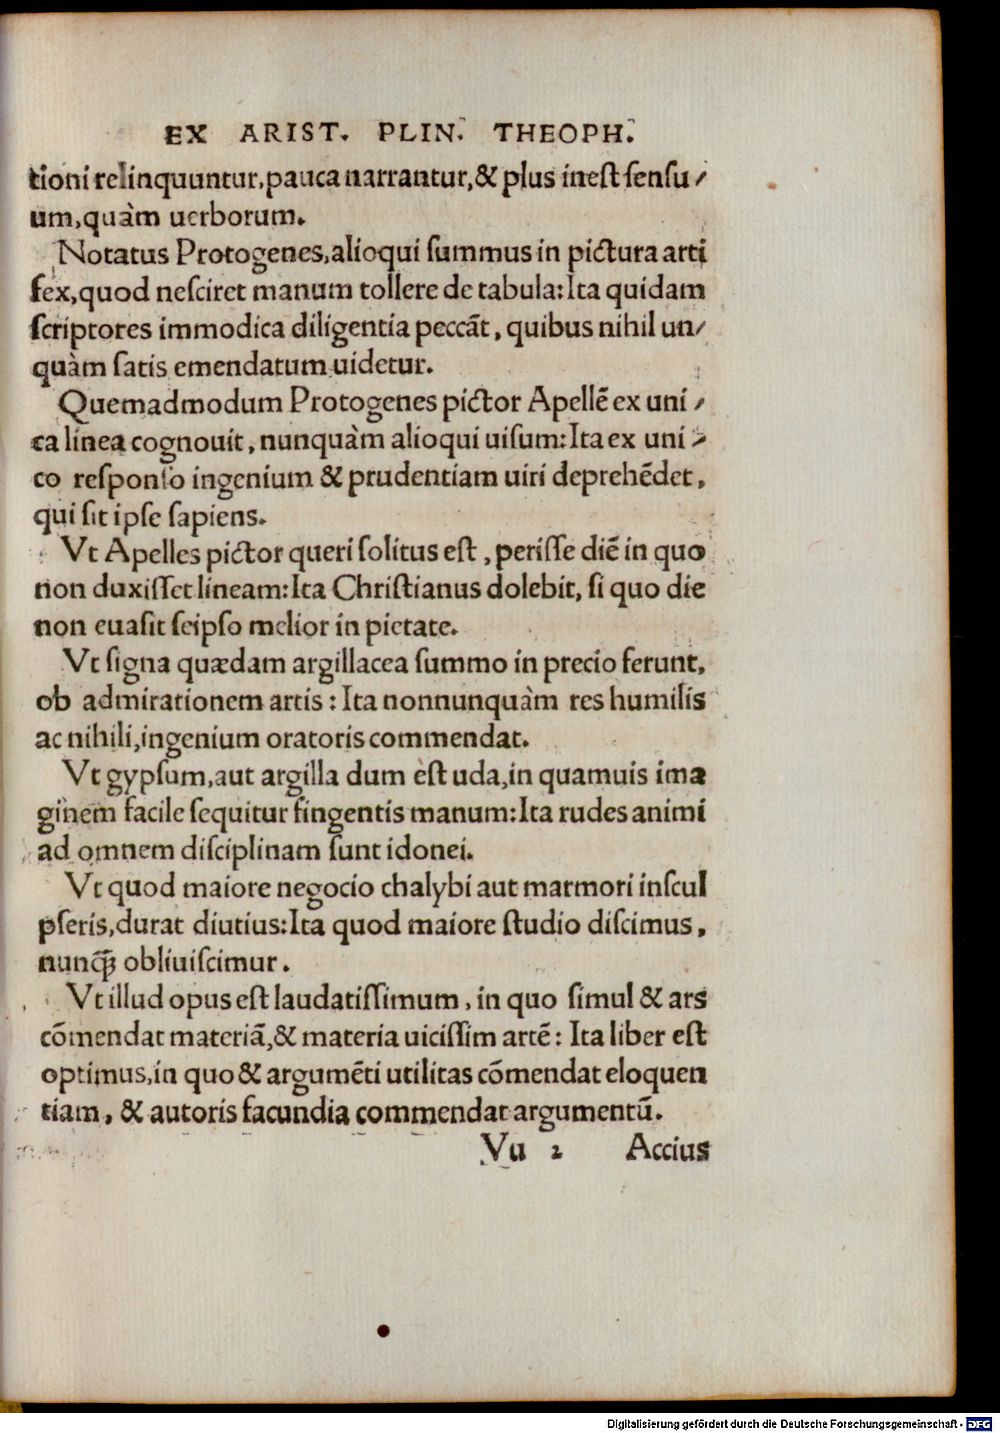 EX ARIST. PLIN. THEOPH.
tioni relinquuntur, pauca narrantur, & plus inest sensu/
um, quàm uerborum.
Notatus Protogenes, alioqui summus in pictura arti
fex, quod nesciret manum tollere de tabula: Ita quidam
scriptores immodica diligentia peccāt, quibus nihil un/
quàm satis emendatum uidetur.
Quemadmodum Protogenes pictor Apellē ex uni/
ca linea cognouit, nunquàm alioqui uisum: Ita ex uni/
co responso ingenium & prudentiam uiri deprehēdet,
qui sit ipse sapiens.
Vt Apelles pictor queri solitus est, perisse diē in quo
non duxisset lineam: Ita Christianus dolebit, si quo die
non euasit seipso melior in pietate.
Vt signa quædam argillacea summo in precio ferunt,
ob admirationem artis: Ita nonnunquàm res humilis
ac nihili, ingenium oratoris commendat.
Vt gypsum, aut argilla dum est uda, in quamuis ima
ginem facile sequitur fingentis manum: Ita rudes animi
ad omnem disciplinam sunt idonei.
Vt quod maiore negocio chalybi aut marmori inscul
pseris, durat diutius: Ita quod maiore studio discimus,
nunq̄ꝫ obliuiscimur.
Vt illud opus est laudatissimum, in quo simul & ars
cōmendat materiā, & materia uicissim artē: Ita liber est
optimus, in quo & argumēti utilitas cōmendat eloquen
tiam, & autoris facundia commendat argumentū.
Vu 2 Accius
Digitalisierung gefördert durch die Deutsche Forschungsgemeinschaft - DFG